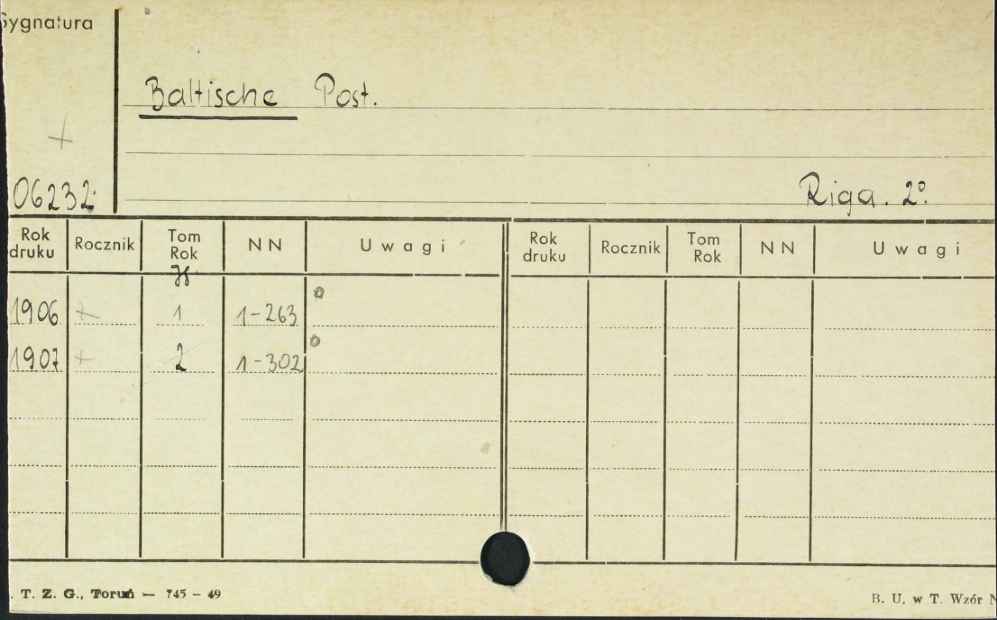 Sygnatura
Baltische Post.
+
06232.
Riga. 2°.
Rok druku Rocznik Tom Rok NN Uwagi Rok druku Rocznik Tom Rok NN Uwagi
1906 + 1 1-263
1907 + 2 1-302
. T. Z. G., Toruń — 745 - 49
B. U. w T. Wzór N